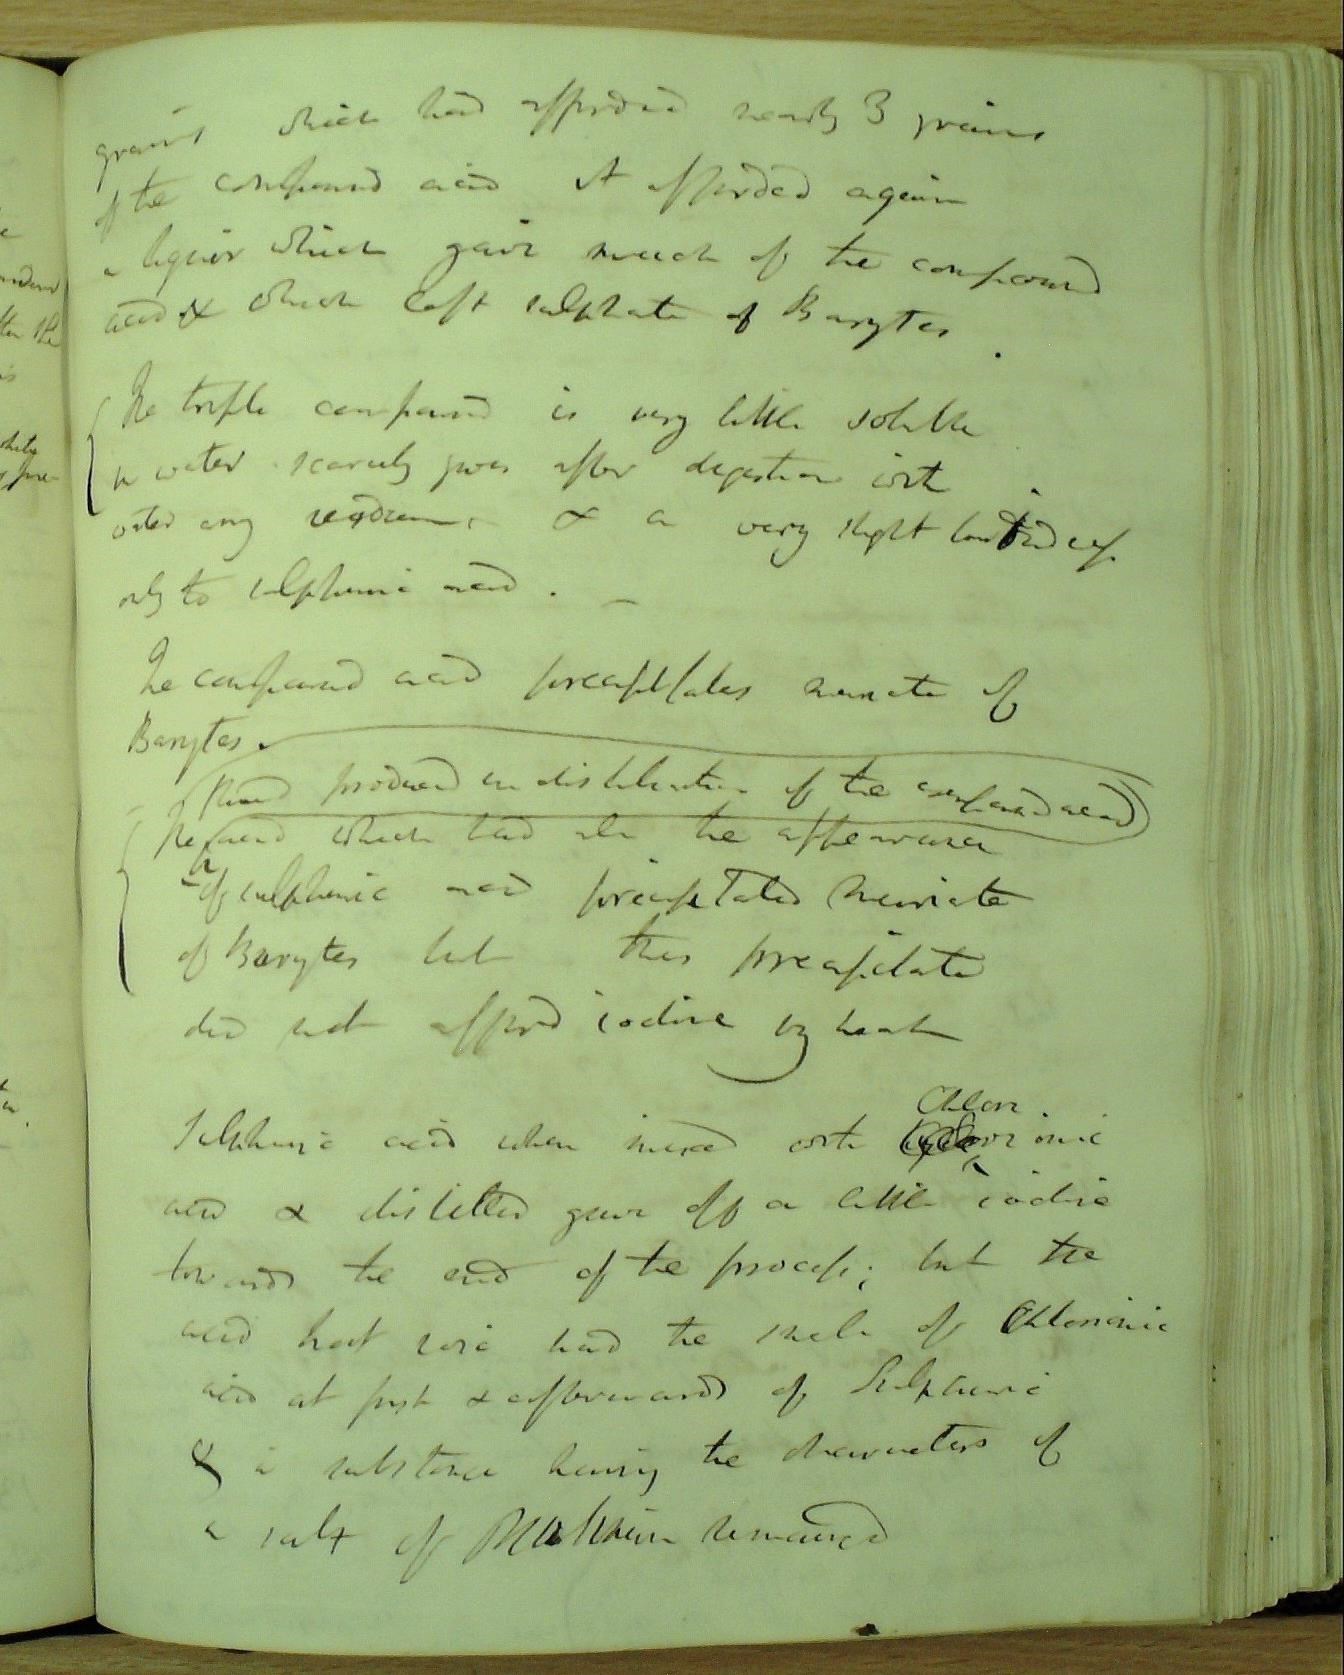 grains which had afforded nearly 3 grains
of the compound acid it afforded again
a liquor which gave much of the compound
acid & which left sulphate of Barytes.
The triple compound is very little soluble
in water scarcely gives after digestion with
water any redness & a very slight
only to sulphuric acid. —
The compound acid precipitates muriate of
Barytes.
fluid produced in distillation of the compound acid
The acid which had all the appearance
of sulphuric acid precipitated muriate
of Barytes but this precipitate
did not afford iodine by heat
Chlor
Sulphuric acid when mixed with ionic
acid & distilled gave off a little iodine
towards the end of the process; but the
acid that rose had the smell of Chlorionic
acid at first & afterwards of Sulphuric
& a substance having the characters of
a salt of remained